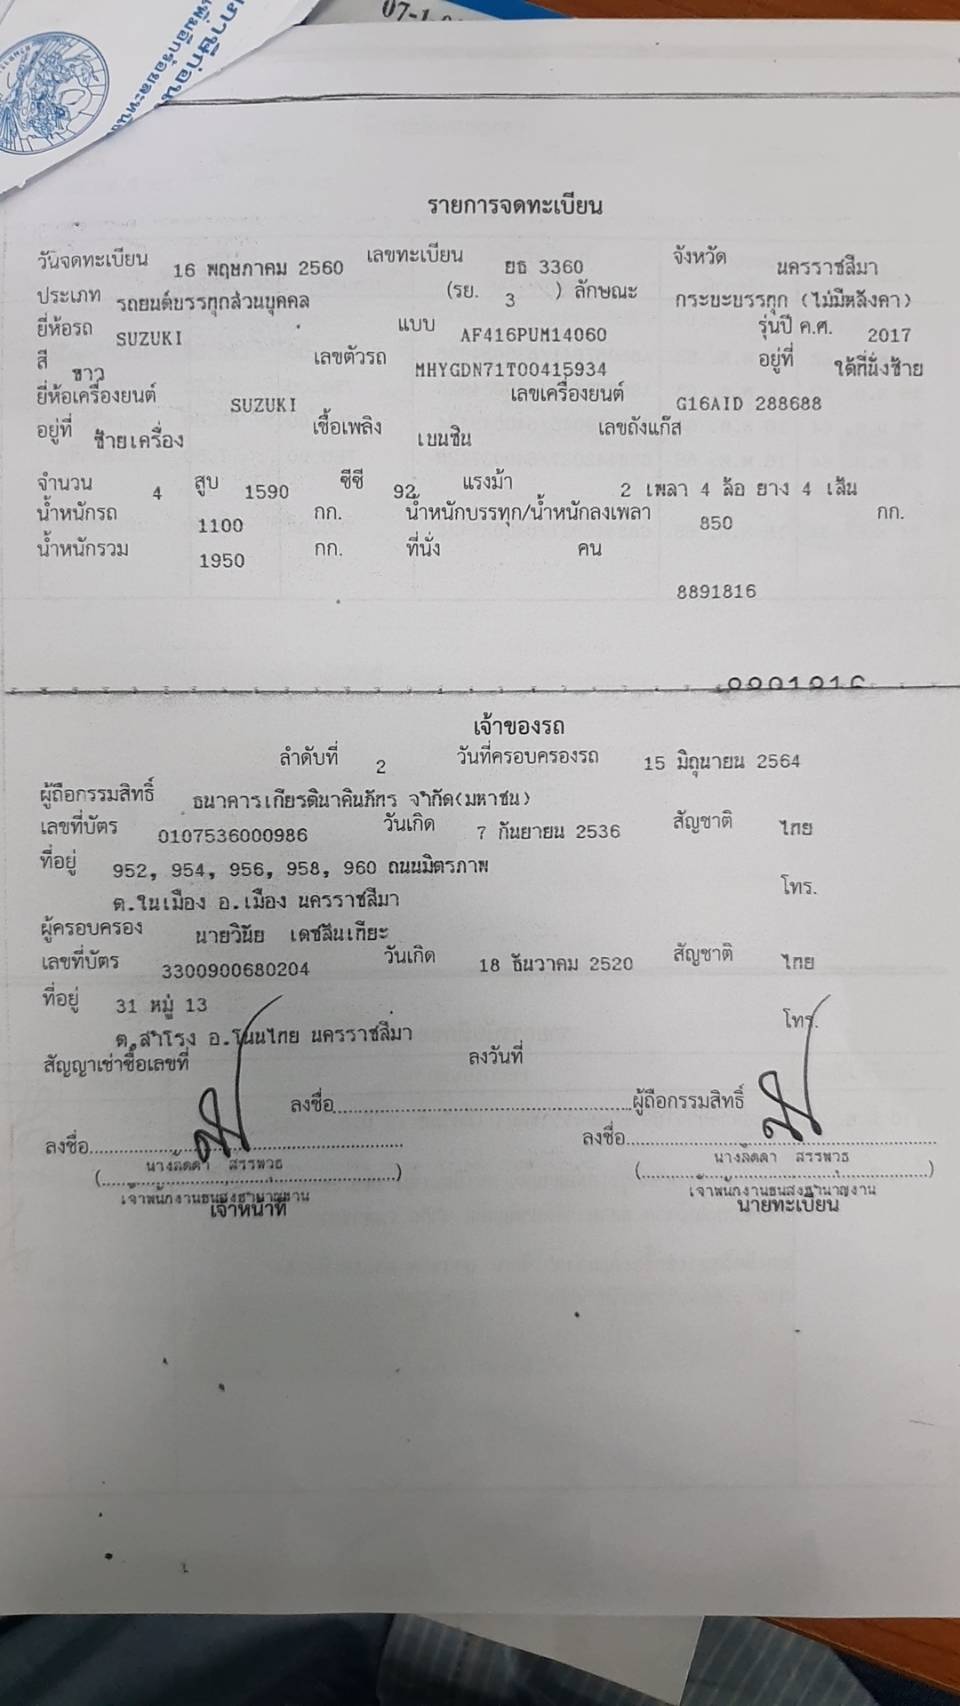 07-1
รายการจดทะเบียน
วันจดทะเบียน 16 พฤษภาคม 2560 เลขทะเบียน ยธ 3360 จังหวัด นครราชสีมา
ประเภท รถยนต์บรรทุกส่วนบุคคล (รย. 3 ) ลักษณะ กระบะบรรทุก (ไม่มีหลังคา)
ยี่ห้อรถ SUZUKI แบบ AF416PUM14060 รุ่นปี ค.ศ. 2017
สี ขาว เลขตัวรถ MHYGDN71T00415934 อยู่ที่ ใต้ที่นั่งซ้าย
ยี่ห้อเครื่องยนต์ SUZUKI เลขเครื่องยนต์ G16AID 288688
อยู่ที่ ซ้ายเครื่อง เชื้อเพลิง เบนซิน เลขถังแก๊ส
จำนวน 4 สูบ 1590 ซีซี 92 แรงม้า 2 เพลา 4 ล้อ ยาง 4 เส้น
น้ำหนักรถ 1100 กก. น้ำหนักบรรทุก/น้ำหนักลงเพลา 850 กก.
น้ำหนักรวม 1950 กก. ที่นั่ง คน
8891816
เจ้าของรถ
ลำดับที่ 2 วันที่ครอบครองรถ 15 มิถุนายน 2564
ผู้ถือกรรมสิทธิ์ ธนาคารเกียรตินาคินภัทร จำกัด(มหาชน)
เลขที่บัตร 0107536000986 วันเกิด 7 กันยายน 2536 สัญชาติ ไทย
ที่อยู่ 952, 954, 956, 958, 960 ถนนมิตรภาพ
ต.ในเมือง อ.เมือง นครราชสีมา โทร.
ผู้ครอบครอง นายวินัย เดชสันเทียะ
เลขที่บัตร 3300900680204 วันเกิด 18 ธันวาคม 2520 สัญชาติ ไทย
ที่อยู่ 31 หมู่ 13
ต.สำโรง อ.โนนไทย นครราชสีมา โทร.
สัญญาเช่าซื้อเลขที่ ลงวันที่
ลงชื่อ ผู้ถือกรรมสิทธิ์
ลงชื่อ ลงชื่อ
นางลัดดา สรรพวธ นางลัดดา สรรพวธ
เจ้าพนักงานขนส่งชำนาญงาน เจ้าพนักงานขนส่งชำนาญงาน
เจ้าหน้าที่ นายทะเบียน